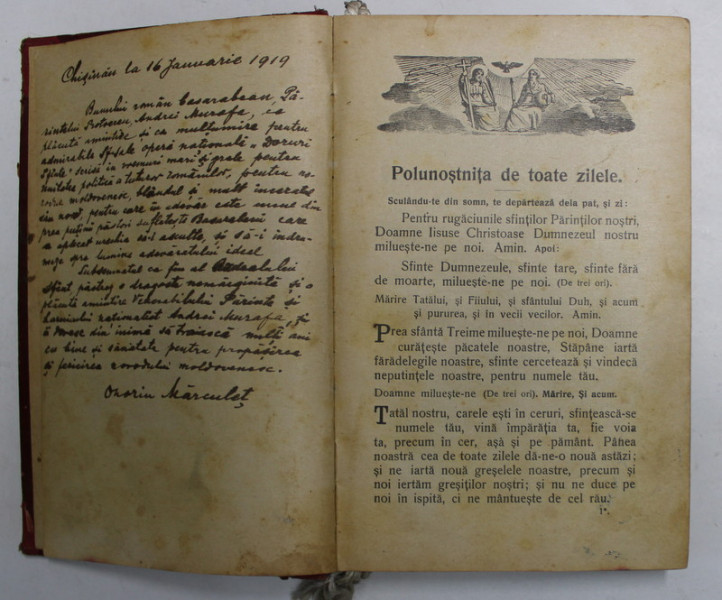 Chișinău la 16 Januarie 1919
Bunului român Basarabean, Pă-
rintelui Protoereu, Andrei Murafa, ca
plăcută amintire și ca mulțumire pentru
admirabila Sfale operă națională „Doruri
Sfinte" scrisă în vremuri mari și grele pentru
unitatea politică a tuturor Românilor, pentru no-
rodul moldovenesc, blândul și mult încercatul
din nord, pentru care în adevăr este unul din
prea puținii păstori sufletești Basarabeni care
a aplecat urechia să-l asculte, și să-i îndru-
meze spre lumina adevăratului ideal
Subsemnatul ca fiu al Ardealului
sfânt păstrez o dragoste nemărginită și o
plăcută amintire Venerabilului Părinte și
harnicului naționalist Andrei Murafa, și
urez din inimă să trăiască mulți ani
cu bine și sănătate pentru propășirea
și fericirea norodului moldovenesc.
Onoriu Mărculeț
Polunoștnița de toate zilele.
Sculându-te din somn, te depărtează dela pat, și zi:
Pentru rugăciunile sfinților Părinților noștri,
Doamne Iisuse Christoase Dumnezeul nostru
miluește-ne pe noi. Amin. Apoi:
Sfinte Dumnezeule, sfinte tare, sfinte fără
de moarte, miluește-ne pe noi. (De trei ori).
Mărire Tatălui, și Fiiului, și sfântului Duh, și acum
și pururea, și în vecii vecilor. Amin.
Prea sfântă Treime miluește-ne pe noi, Doamne
curățește păcatele noastre, Stăpâne iartă
fărădelegile noastre, sfinte cercetează și vindecă
neputințele noastre, pentru numele tău.
Doamne miluește-ne (De trei ori). Mărire, Și acum.
Tatăl nostru, carele ești în ceruri, sfințească-se
numele tău, vină împărăția ta, fie voia
ta, precum în cer, așà și pe pământ. Pânea
noastră cea de toate zilele dă-ne-o nouă astăzi;
și ne iartă nouă greșelele noastre, precum și
noi iertăm greșiților noștri; și nu ne duce pe
noi în ispită, ci ne mântuește de cel rău.
1*.